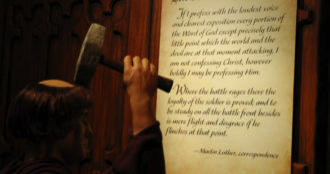 If I profess with the loudest voice
and clearest exposition every portion of
the Word of God except precisely that
little point which the world and the
devil are at that moment attacking, I
am not confessing Christ, however
boldly I may be professing Him.
Where the battle rages there the
loyalty of the soldier is proved; and to
be steady on all the battle front besides
is mere flight and disgrace if he
flinches at that point.
—Martin Luther, correspondence